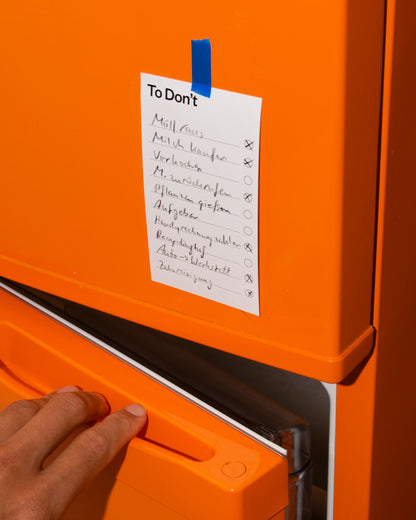 To Don't
Müll raus
Milch kaufen
Vorkochen
M. zurückrufen
Pflanzen gießen
Aufgeben
Handyrechnung zahlen
Recyclinghof
Auto → Werkstatt
Zahnreinigung